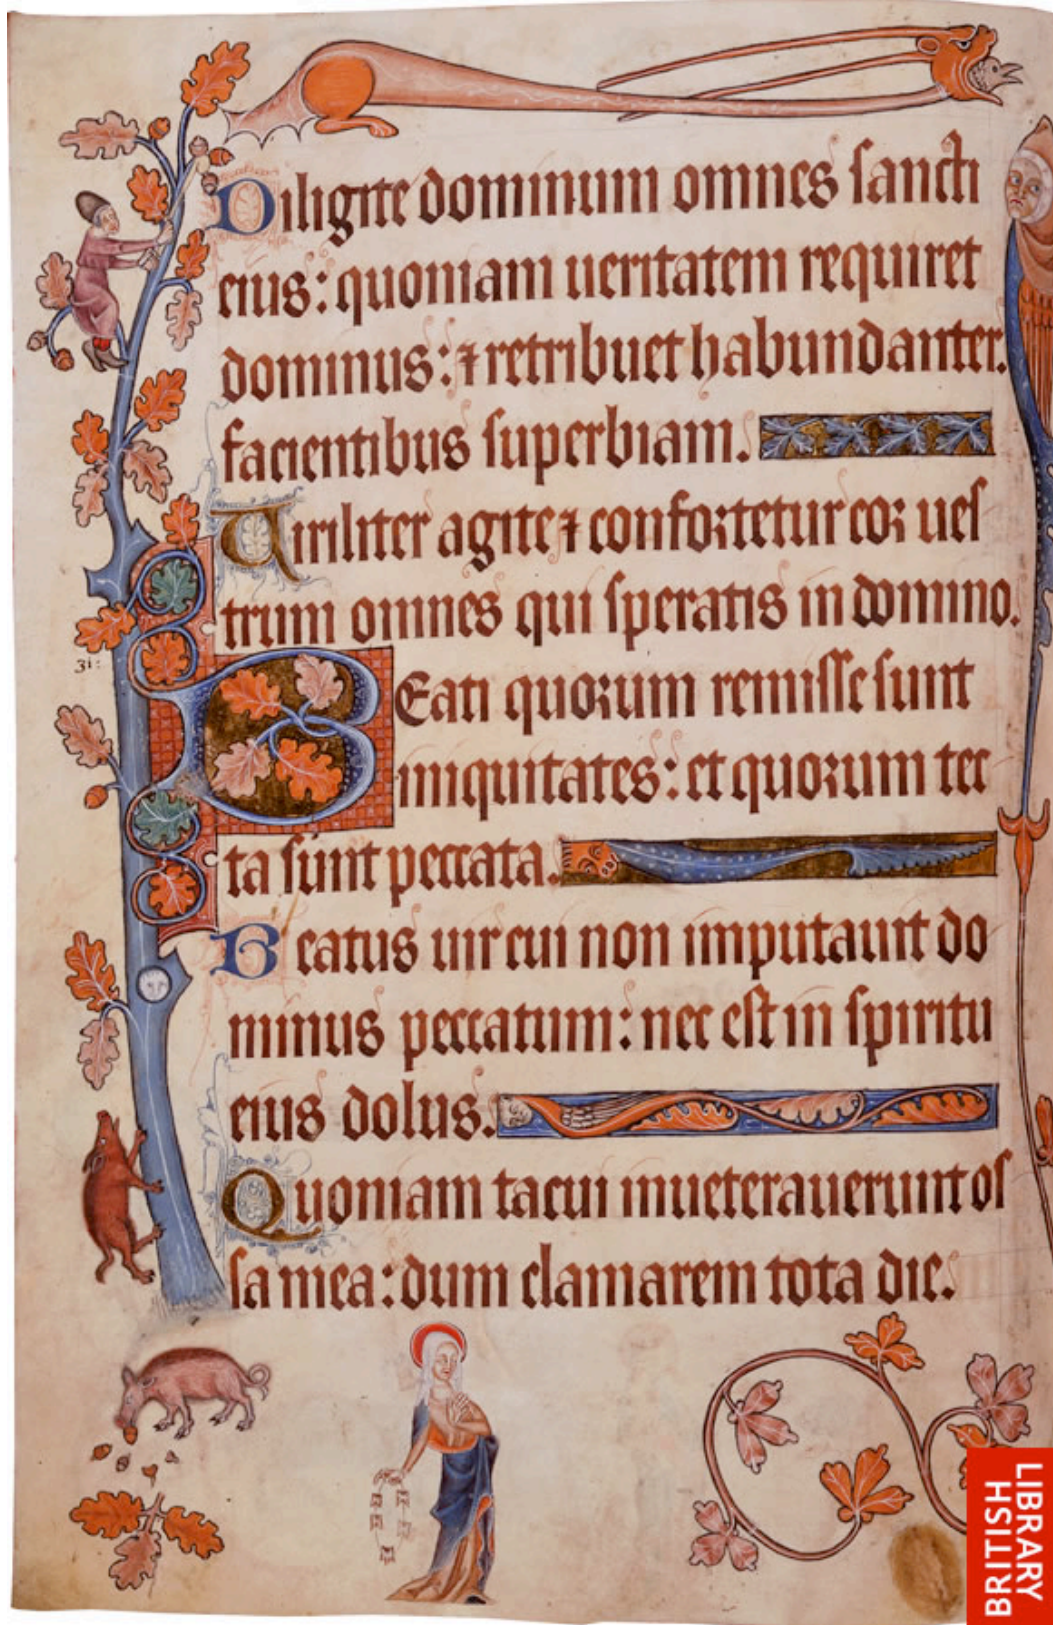 Diligite dominum omnes sancti
eius: quoniam ueritatem requiret
dominus: ⁊ retribuet habundanter.
facientibus superbiam.
Uiriliter agite ⁊ confortetur cor ues
trum omnes qui speratis in domino.
31:
BEati quorum remisse sunt
iniquitates: et quorum tec
ta sunt peccata.
Beatus uir cui non imputauit do
minus peccatum: nec est in spiritu
eius dolus.
Quoniam tacui inueterauerunt os
sa mea: dum clamarem tota die.
LIBRARY
BRITISH